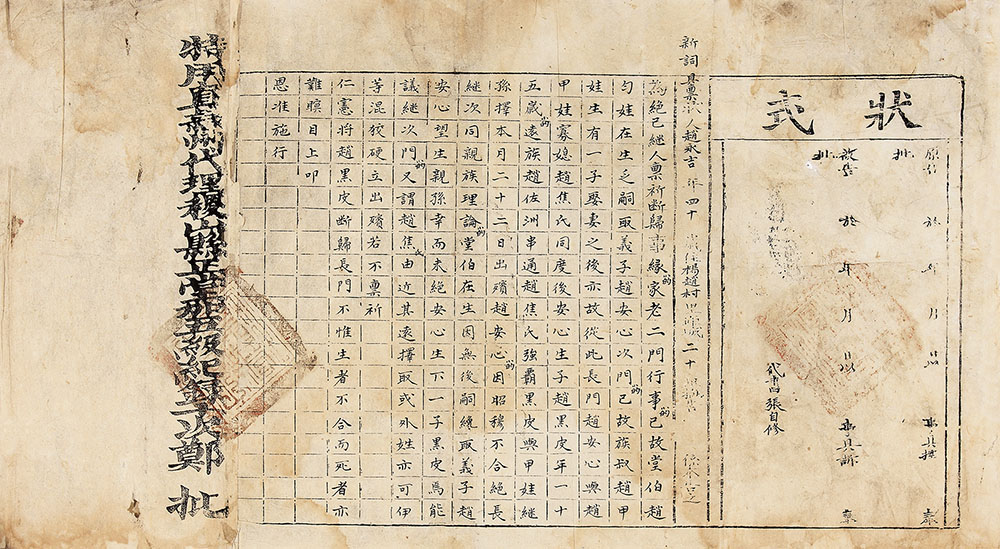 狀式
代書張自修
新詞
具稟狀人趙永吉 年四十 楊趙村 二十
為絕己繼人稟祈斷歸事緣家老二門行事的已故堂伯趙
勻娃在生乏嗣取義子趙安心次門的已故族叔趙甲
娃生有一子娶妻之後亦故從此長門趙安心與趙
甲娃寡媳趙焦氏同度後安心生子趙黑皮年一十
五歲的遠族趙佐洲串通趙焦氏強霸黑皮與甲娃繼
孫擇本月二十二日出殯趙安心的因昭穆不合絕長
繼次同親族理論的堂伯在生因無後嗣纔取義子趙
安心望生親孫幸而未絕安心生下一子黑皮焉能
議繼次門的又謂趙焦氏由近其遠擇取或外姓亦可伊
等混狡硬立出殯若不稟祈
仁憲將趙黑皮斷歸長門不惟生者不合而死者亦
難瞑目上叩
恩准施行
特用直隸州代理稷山縣正堂加五級紀錄十次鄭 批